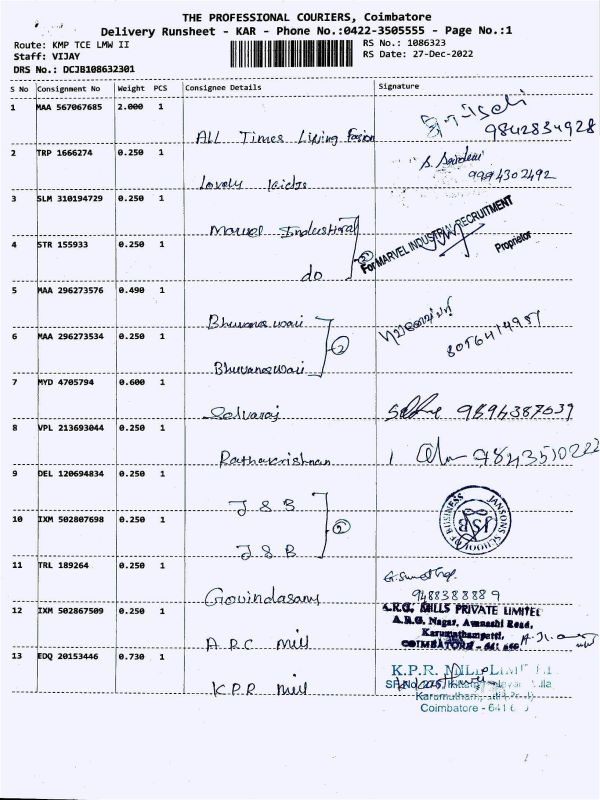 THE PROFESSIONAL COURIERS, Coimbatore
Delivery Runsheet - KAR - Phone No.:0422-3505555 - Page No.:1
Route: KMP TCE LMW II
RS No.: 1086323
Staff: VIJAY
RS Date: 27-Dec-2022
DRS No.: DCJB108632301
S No Consignment No Weight PCS Consignee Details Signature
1 MAA 567067685 2.000 1
ALL Times Living Fasion
9842834928
2 TRP 1666274 0.250 1
Lovely kids
9994302492
3 SLM 310194729 0.250 1
Marvel Industrial
For MARVEL INDUSTRIAL RECRUITMENT
Proprietor
4 STR 155933 0.250 1
do
2
5 MAA 296273576 0.490 1
Bhuvaneswari
6 MAA 296273534 0.250 1
Bhuvaneswari
2
8056414951
7 MYD 4705794 0.600 1
Selvaraj
9894387639
8 VPL 213693044 0.250 1
Rathakrishnan
9843510222
9 DEL 120694834 0.250 1
J S B
JANSONS SCHOOL OF BUSINESS
JSB
10 IXM 502807698 0.250 1
J S B
2
11 TRL 189264 0.250 1
Govindasamy
9488388889
12 IXM 502867509 0.250 1
A.R.C mill
MILLS PRIVATE LIMITED
Nagar, Avanashi Road,
Karumathampatti,
COIMBATORE - 641 659
13 EDQ 20153446 0.730 1
K.P.R mill
K.P.R. MILL LIMITED
Coimbatore - 641